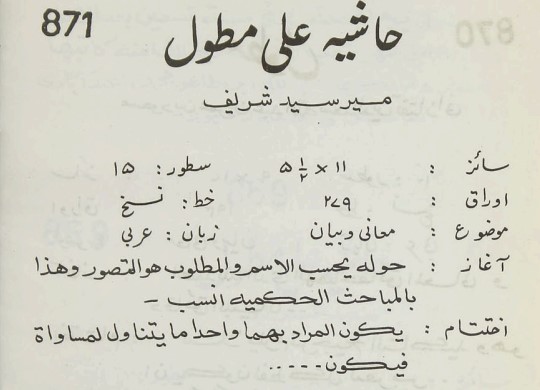 871
حاشیہ علی مطول
میر سید شریف
سائز : ۱۱ × ۵ ½ سطور: ۱۵
اوراق : ۲۷۹ خط: نسخ
موضوع : معانی و بیان زبان: عربی
آغاز : حوله بحسب الاسم والمطلوب هو التصور وهذا
بالمباحث الحكميه انسب –
اختتام : يكون المراد بهما واحدا ما يتناول لمساواة
فيكون-----